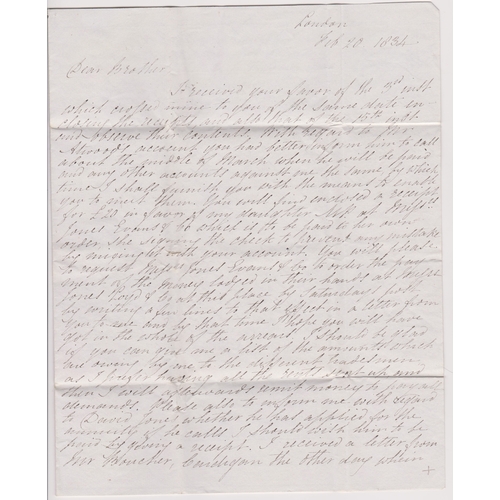 London
Feb 20 1834
Dear Brother
I received your favor of the 3rd inst
which crossed mine to you of the same date en-
closing the receipts and also that of the 15th inst
and observe their contents. With regard to Mr
Atwoods account you had better inform him to call
about the middle of March when he will be paid
and any other accounts against me the same by which
time I shall furnish you with the means to enable
you to meet them. You will find enclosed a receipt
for £20 in favor of my daughter at
Jones Evans & Co which is to be paid to her own
order, she signing the check to prevent any mistake
by mixing it with your account. You will please
to request Jones Evans & Co to order the pay
ment of the money lodged in their hands at
Jones Loyd & Co at this place by Saturdays post
by writing a few lines to that effect in a letter from
you for sure any by that time I hope you will have
got in the whole of the arrears. I should be glad
if you can give me a list of the amounts which
are owing by me to the different tradesmen,
as I all the
then I will afterwards remit money to pay all
demands. Please also to inform me with regard
to David Jones whether he has applied for the
annuity if he calls I should wish him to be
paid by giving a receipt. I received a letter from
Mr the other day when